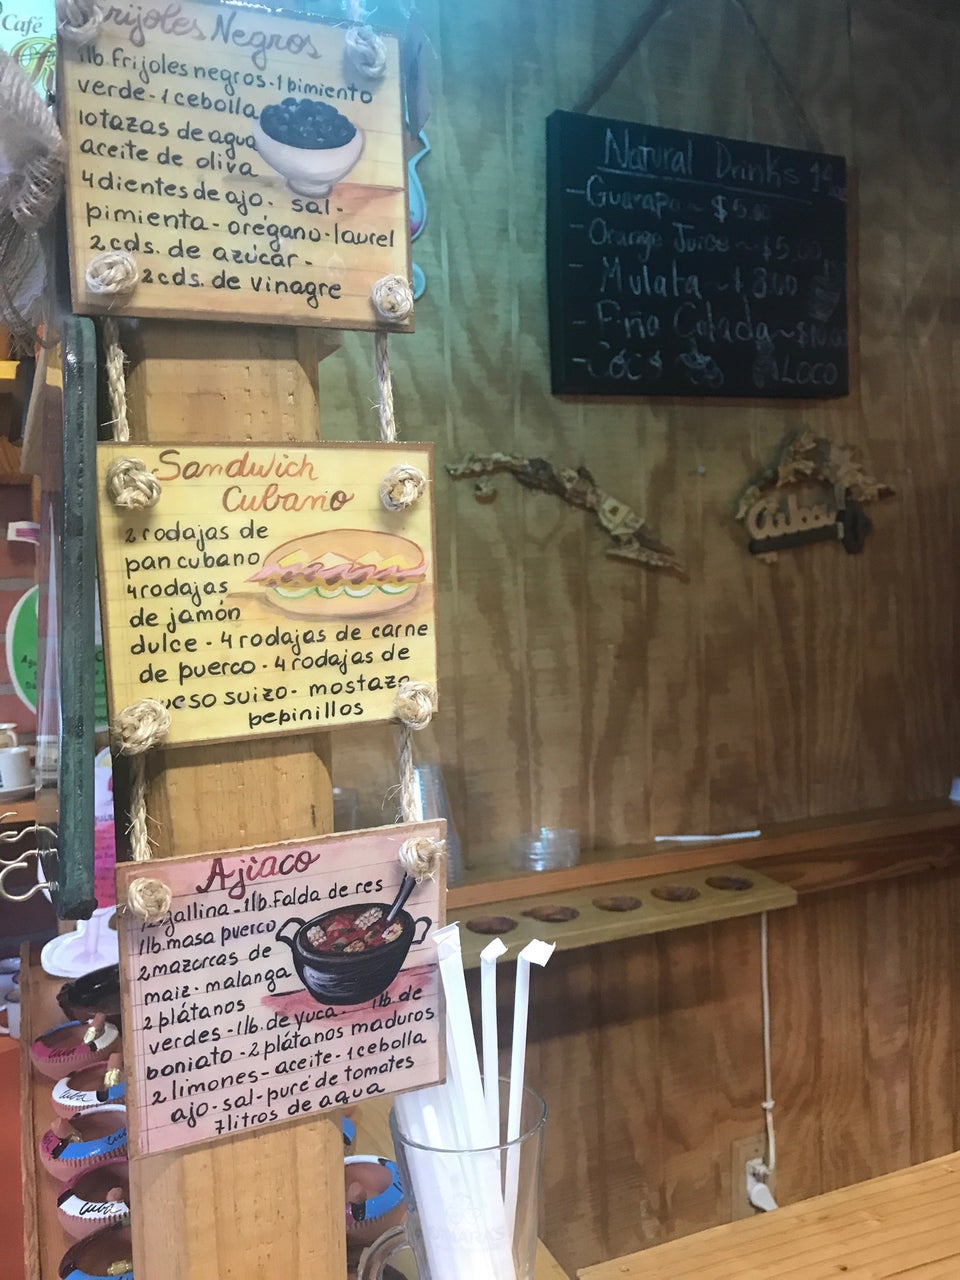 Café
Frijoles Negros
1lb. Frijoles negros - 1 pimiento
verde - 1 cebolla
10 tazas de agua
aceite de oliva
4 dientes de ajo. sal -
pimienta - orégano - laurel
2 cds. de azúcar -
2 cds. de vinagre
Sandwich
Cubano
2 rodajas de
pan cubano
4 rodajas
de jamón
dulce - 4 rodajas de carne
de puerco - 4 rodajas de
queso suizo - mostaza
pepinillos
Ajiaco
gallina - 1lb. Falda de res
1lb. masa puerco
2 mazorcas de
maiz - malanga
2 plátanos 1lb. de
verdes - 1lb. de yuca -
boniato - 2 plátanos maduros
2 limones - aceite - 1 cebolla
ajo - sal - puré de tomates
7 litros de agua
Natural Drinks
- Guarapo ~ $5.00
- Orange Juice ~ $5.00
- Mulata ~ $3.00
- Piña Colada ~
- Coco LOCO
Cuba
Cuba
Cuba
Cuba